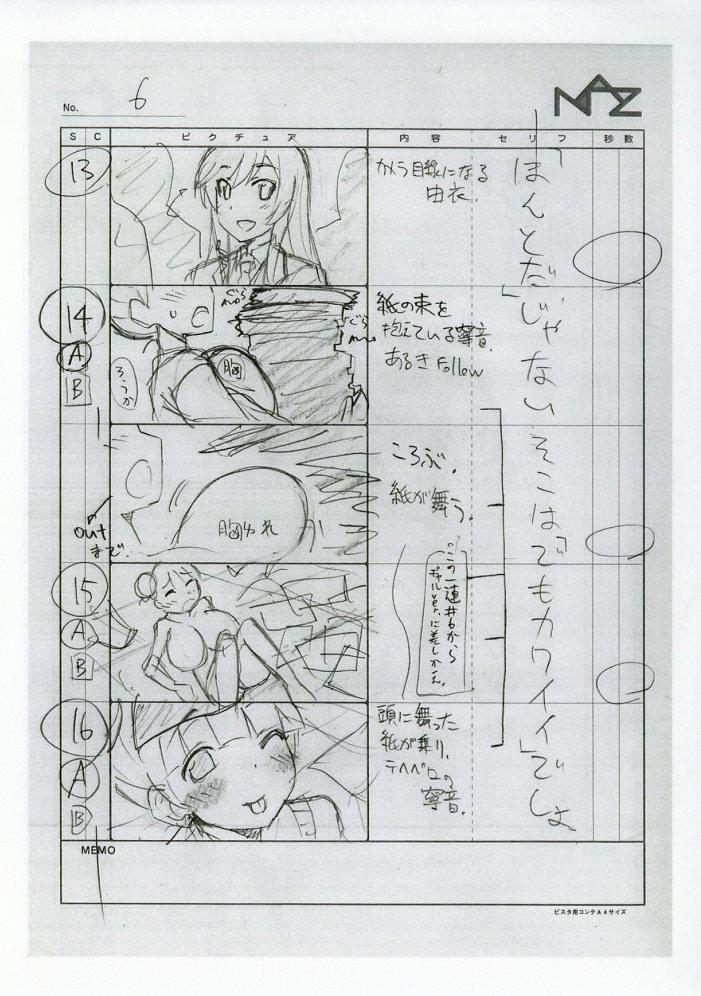 No. 6
NAZ
S C ピクチュア 内容 セリフ 秒数
13
カメラ目線になる
由衣.
14
A
B
ぐら
ぐら
胸
ろうか
紙の束を
抱えている寧音.
あるきFollow
ころぶ.
紙が舞う.
胸ゆれ
out
まで.
15
A
B
この一連#6から
ギャルver.に差しかえ.
16
A
B
頭に舞った
紙が乗り,
テヘペロの
寧音.
「ほんとだ」じゃないそこは「でもカワイイ」でしょ
MEMO
ビスタ用コンテA4サイズ